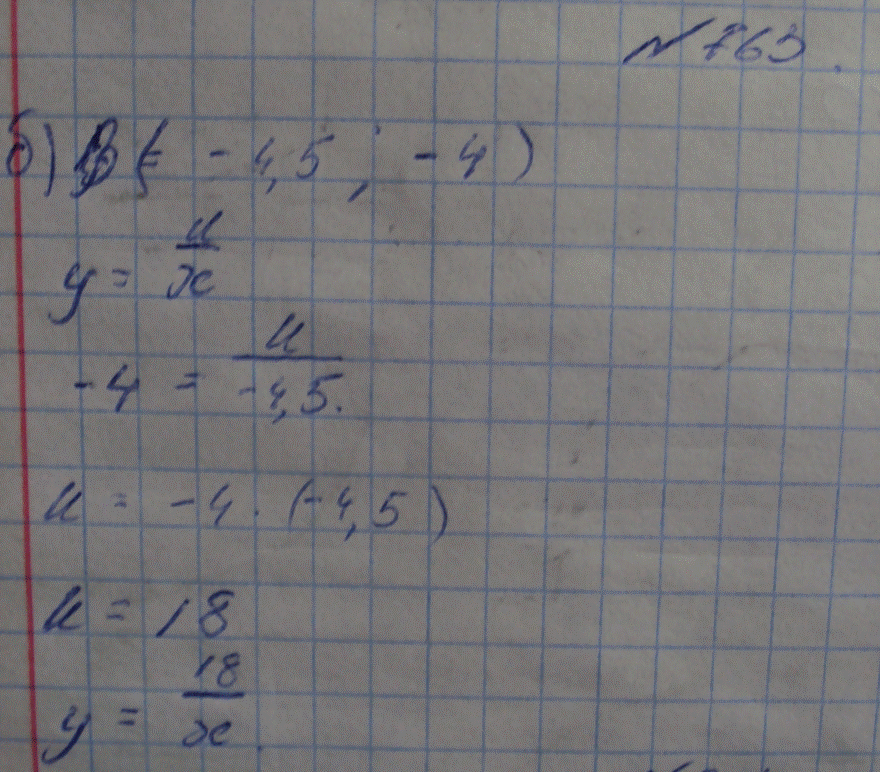 № 763.
б) B( -4,5 ; -4 )
y = к/x
-4 = к/-4,5.
к = -4 · (-4,5)
к = 18
y = 18/x.